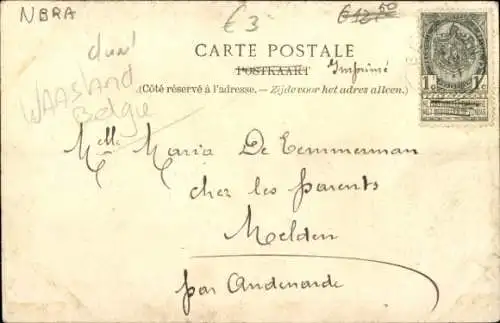 NBRA
€ 3-
€ 12.50
dun!
WAASLAND
België
CARTE POSTALE
POSTKAART Imprimé
(Côté réservé à l'adresse. — Zijde voor het adres alleen.)
1c 1c
Melle Maria De Temmerman
chez les parents
Melden
par Audenarde